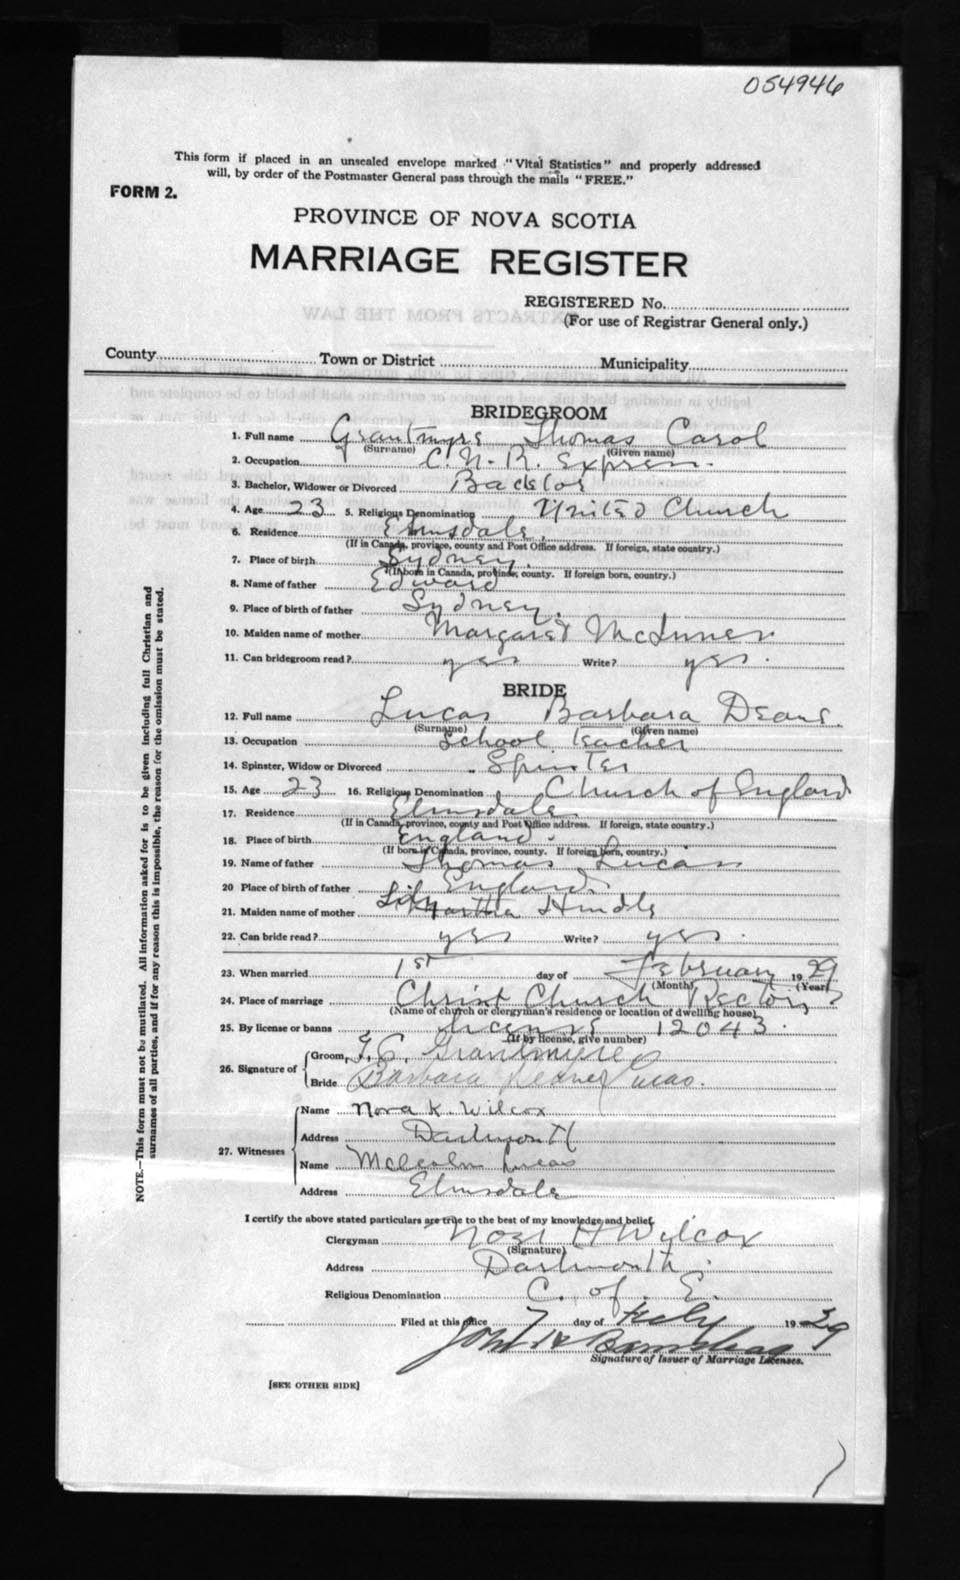 054946
This form if placed in an unsealed envelope marked "Vital Statistics" and properly addressed
will, by order of the Postmaster General pass through the mails "FREE."
FORM 2.
PROVINCE OF NOVA SCOTIA
MARRIAGE REGISTER
REGISTERED No.
(For use of Registrar General only.)
County Town or District Municipality
BRIDEGROOM
1. Full name Grantmyre Thomas Carol
(Surname) (Given name)
2. Occupation C.N.R. Express.
3. Bachelor, Widower or Divorced Bachelor
4. Age 23 5. Religious Denomination United Church
6. Residence Elmsdale,
(If in Canada, province, county and Post Office address. If foreign, state country.)
7. Place of birth Sydney.
(If born in Canada, province, county. If foreign born, country.)
8. Name of father Edward
9. Place of birth of father Sydney.
10. Maiden name of mother Margaret McInnes
11. Can bridegroom read? yes Write? yes.
BRIDE
12. Full name Lucas Barbara Deane.
(Surname) (Given name)
13. Occupation School Teacher
14. Spinster, Widow or Divorced Spinster
15. Age 23 16. Religious Denomination Church of England
17. Residence Elmsdale
(If in Canada, province, county and Post Office address. If foreign, state country.)
18. Place of birth England.
(If born in Canada, province, county. If foreign born, country.)
19. Name of father Thomas Lucas
20 Place of birth of father England.
21. Maiden name of mother Martha Hindle
22. Can bride read? yes Write? yes.
23. When married 1st day of February 19 29
(Month) (Year)
24. Place of marriage Christ Church Rectory
(Name of church or clergyman's residence or location of dwelling house)
25. By license or banns license 12043.
(If by license, give number)
26. Signature of Groom, T. C. Grantmyre
Bride Barbara Lucas.
27. Witnesses Name Nora K. Wilcox
Address Dartmouth
Name Malcolm Lucas
Address Elmsdale
I certify the above stated particulars are true to the best of my knowledge and belief.
Clergyman Noel H Wilcox
(Signature)
Address Dartmouth.
Religious Denomination C. of E.
Filed at this office 7 day of 19
Signature of Issuer of Marriage Licenses.
[SEE OTHER SIDE]
NOTE.—This form must not be mutilated. All information asked for is to be given including full Christian and
surnames of all parties, and if for any reason this is impossible, the reason for the omission must be stated.